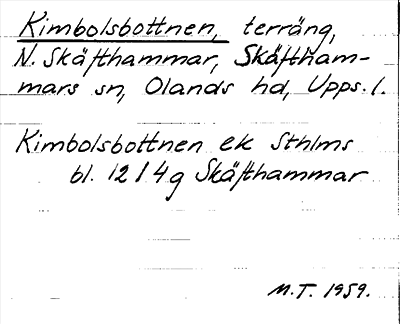 Kimbolsbottnen, terräng,
N. Skäfthammar, Skäftham-
mars sn, Olands hd, Upps. l.
Kimbolsbottnen ek Sthlms
bl. 12 I 4g Skäfthammar
M.T. 1959.